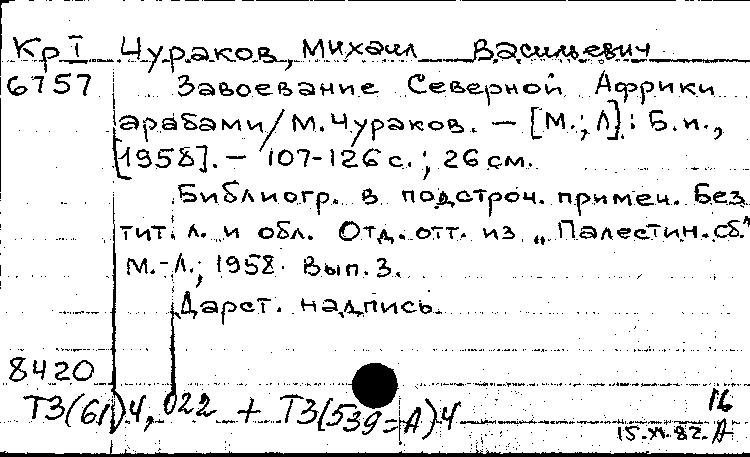 Кр I Чураков, Михаил Васильевич
6757 Завоевание Северной Африки
арабами/ М. Чураков. — [М.; Л]: Б.и.,
[1958]. — 107-126 с.; 26 см.
Библиогр. в подстроч. примеч. Без
тит. л. и обл. Отд. отт. из „Палестин. сб."
М.-Л.; 1958. Вып. 3.
Дарст. надпись.
8420
Т3(61)4,022 + Т3(539=А)4 16
15.XI.82. А